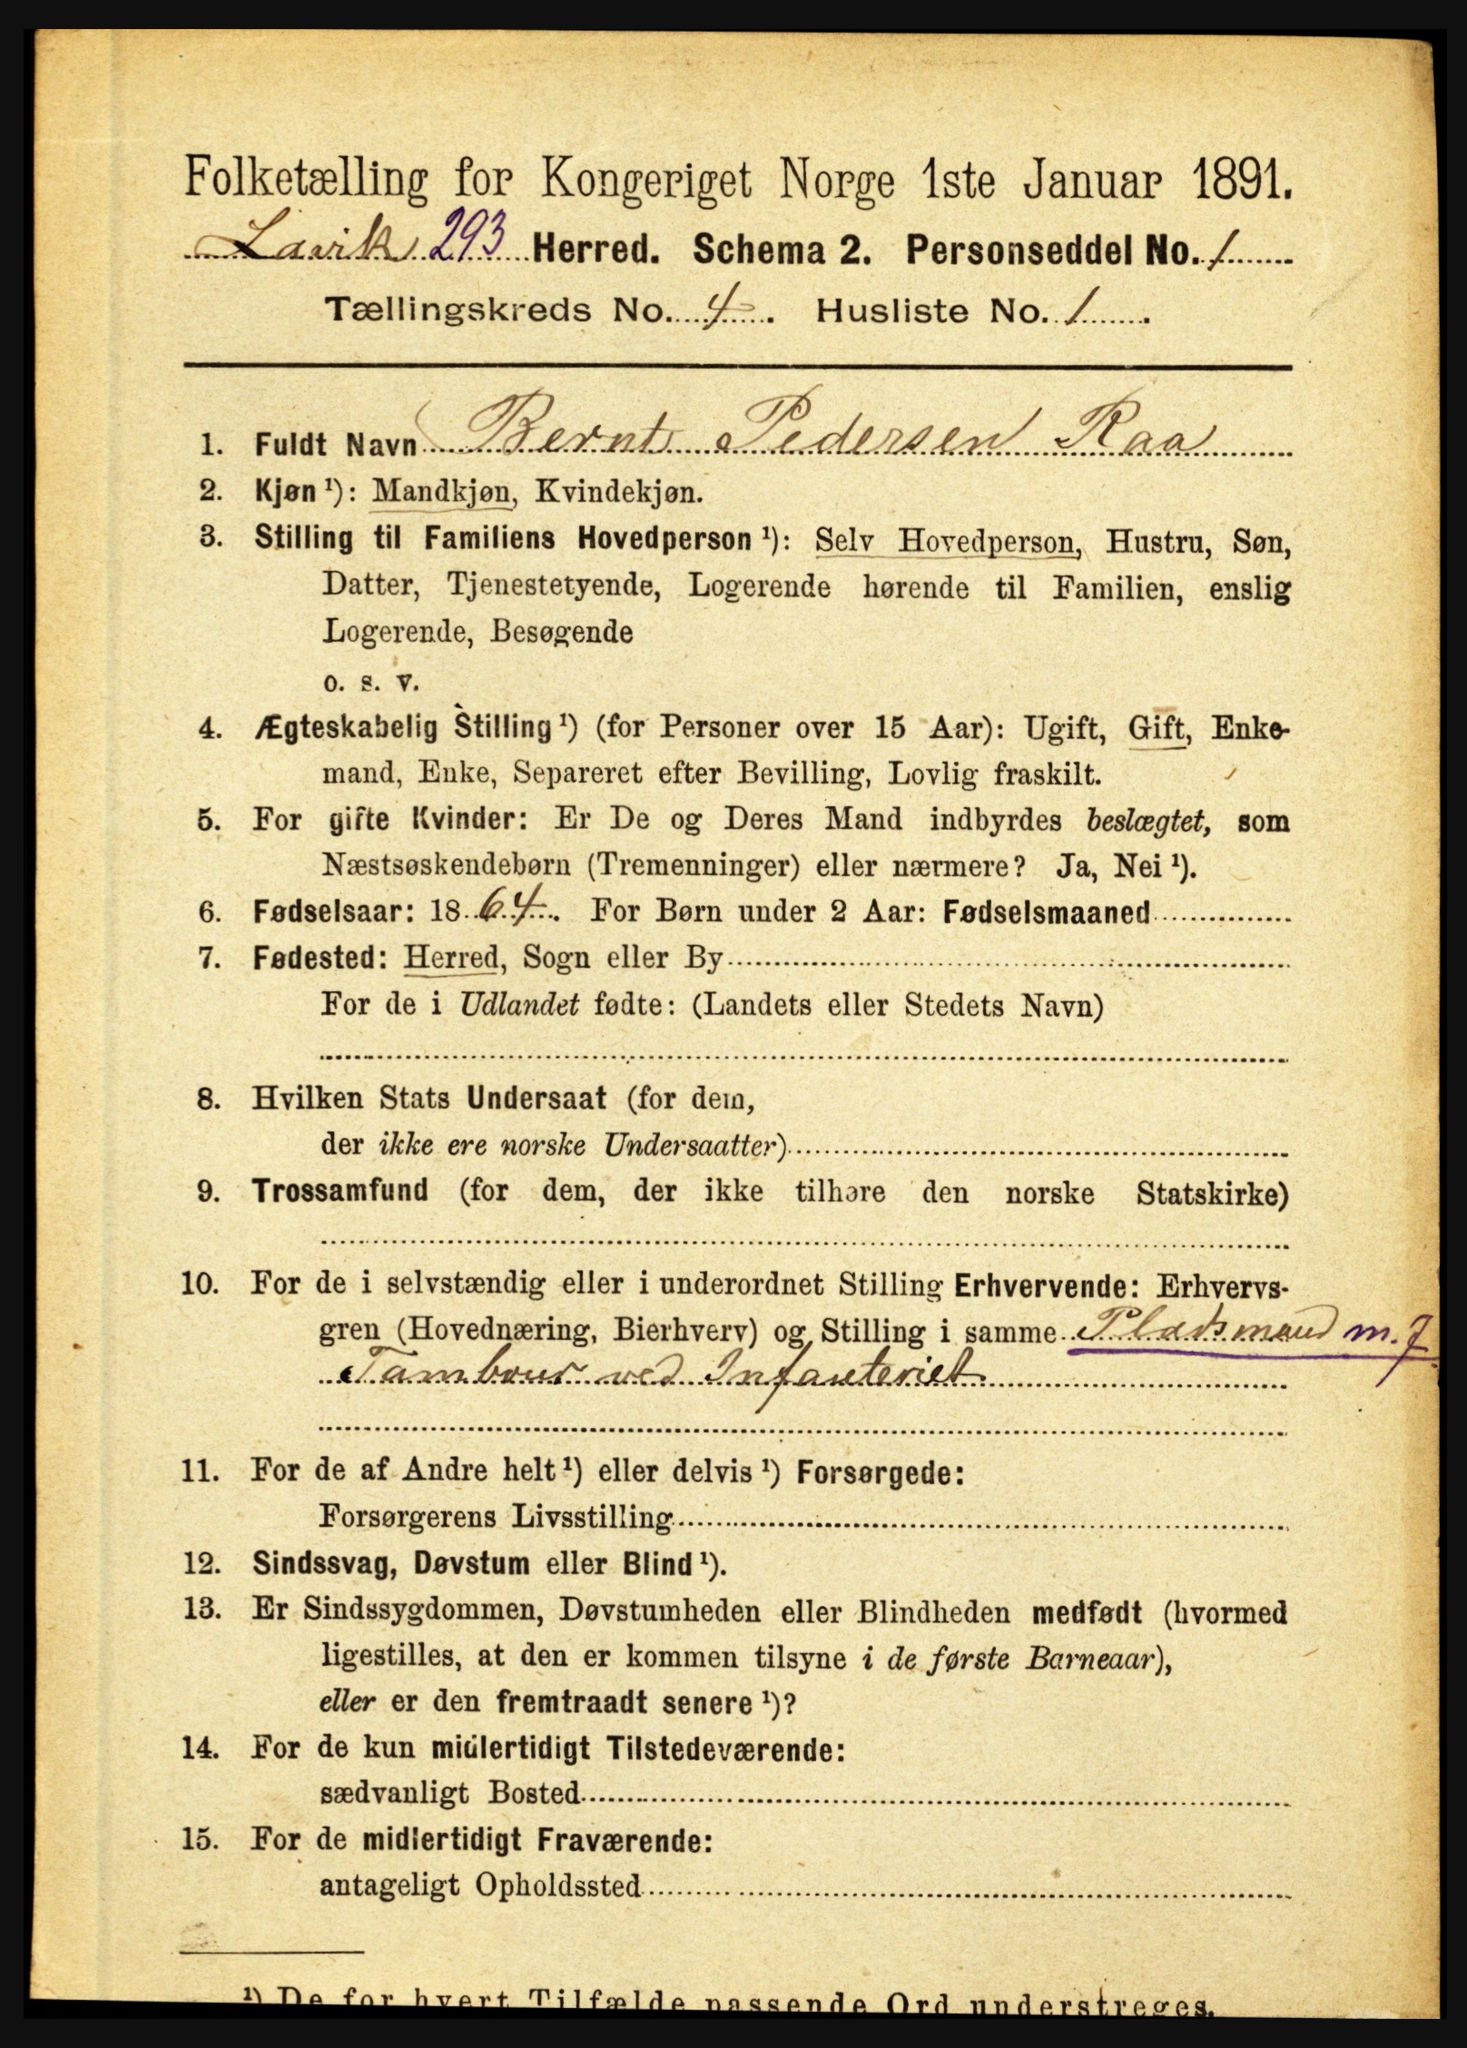 Folketælling for Kongeriget Norge 1ste Januar 1891.
Lavik 293 Herred. Schema 2. Personseddel No. 1
Tællingskreds No. 4. Husliste No. 1.
1. Fuldt Navn Bernt Pedersen Raa
2. Kjøn ¹): Mandkjøn, Kvindekjøn.
3. Stilling til Familiens Hovedperson ¹): Selv Hovedperson, Hustru, Søn,
Datter, Tjenestetyende, Logerende hørende til Familien, enslig
Logerende, Besøgende
o. s. v.
4. Ægteskabelig Stilling ¹) (for Personer over 15 Aar): Ugift, Gift, Enke-
mand, Enke, Separeret efter Bevilling, Lovlig fraskilt.
5. For gifte Kvinder: Er De og Deres Mand indbyrdes beslægtet, som
Næstsøskendebørn (Tremenninger) eller nærmere? Ja, Nei ¹).
6. Fødselsaar: 1864. For Børn under 2 Aar: Fødselsmaaned
7. Fødested: Herred, Sogn eller By
For de i Udlandet fødte: (Landets eller Stedets Navn)
8. Hvilken Stats Undersaat (for dem,
der ikke ere norske Undersaatter)
9. Trossamfund (for dem, der ikke tilhøre den norske Statskirke)
10. For de i selvstændig eller i underordnet Stilling Erhvervende: Erhvervs-
gren (Hovednæring, Bierhverv) og Stilling i samme Pladsmand m. J
Tambour ved Infanteriet
11. For de af Andre helt ¹) eller delvis ¹) Forsørgede:
Forsørgerens Livsstilling
12. Sindssvag, Døvstum eller Blind ¹).
13. Er Sindssygdommen, Døvstumheden eller Blindheden medfødt (hvormed
ligestilles, at den er kommen tilsyne i de første Barneaar),
eller er den fremtraadt senere ¹)?
14. For de kun midlertidigt Tilstedeværende:
sædvanligt Bosted
15. For de midlertidigt Fraværende:
antageligt Opholdssted
¹) De for hvert Tilfælde passende Ord understreges.